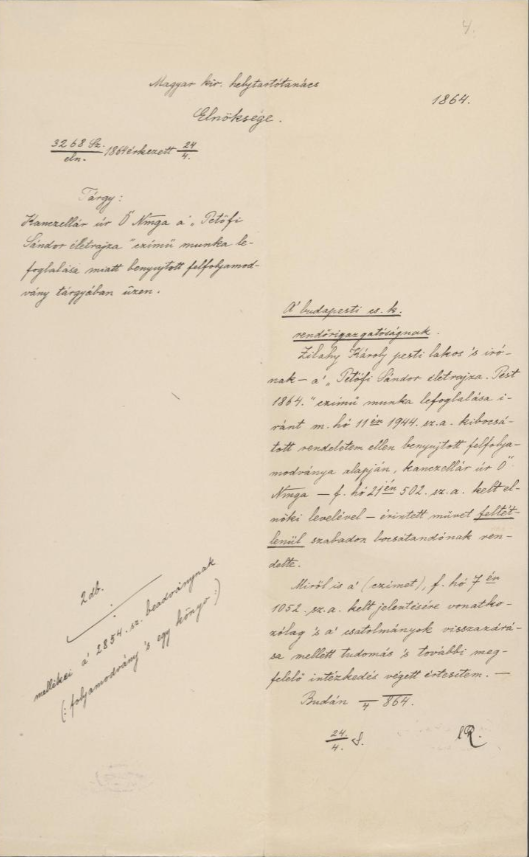 4.
Magyar kir. helytartótanács
Elnöksége.
1864.
3268 Sz.
eln. 1864 érkezett 24/4.
Tárgy:
Kanczellár úr Ő Nmga a' „Petőfi
Sándor életrajza" czimű munka le-
foglalása miatt benyujtott felfolyamod-
vány tárgyában üzen.
A' budapesti cs. k.
rendőrigazgatóságnak.
Zilahy Károly pesti lakos 's iró-
nak – a' „Petőfi Sándor életrajza. Pest
1864." czimű munka lefoglalása i-
ránt m. hó 11én 1944. sz. a. kibocsá-
tott rendeletem ellen benyujtott felfolya-
modványa alapján, kanczellár úr Ő
Nmga – f. hó 21én 502. sz. a. kelt el-
nöki levelével – érintett művet feltét-
lenül szabadon bocsátandónak ren-
delte.
Miről is a' (czimet), f. hó 7én
1052. sz. a. kelt jelentésére vonatko-
zólag 's a' csatolmányok visszazárá-
sa mellett tudomás 's további meg-
felelő intézkedés végett értesitem. —
Budán /4 864.
24/4.
2 db.
mellékei a' 2854. sz. beadványnak
(: folyamodvány 's egy könyv :)